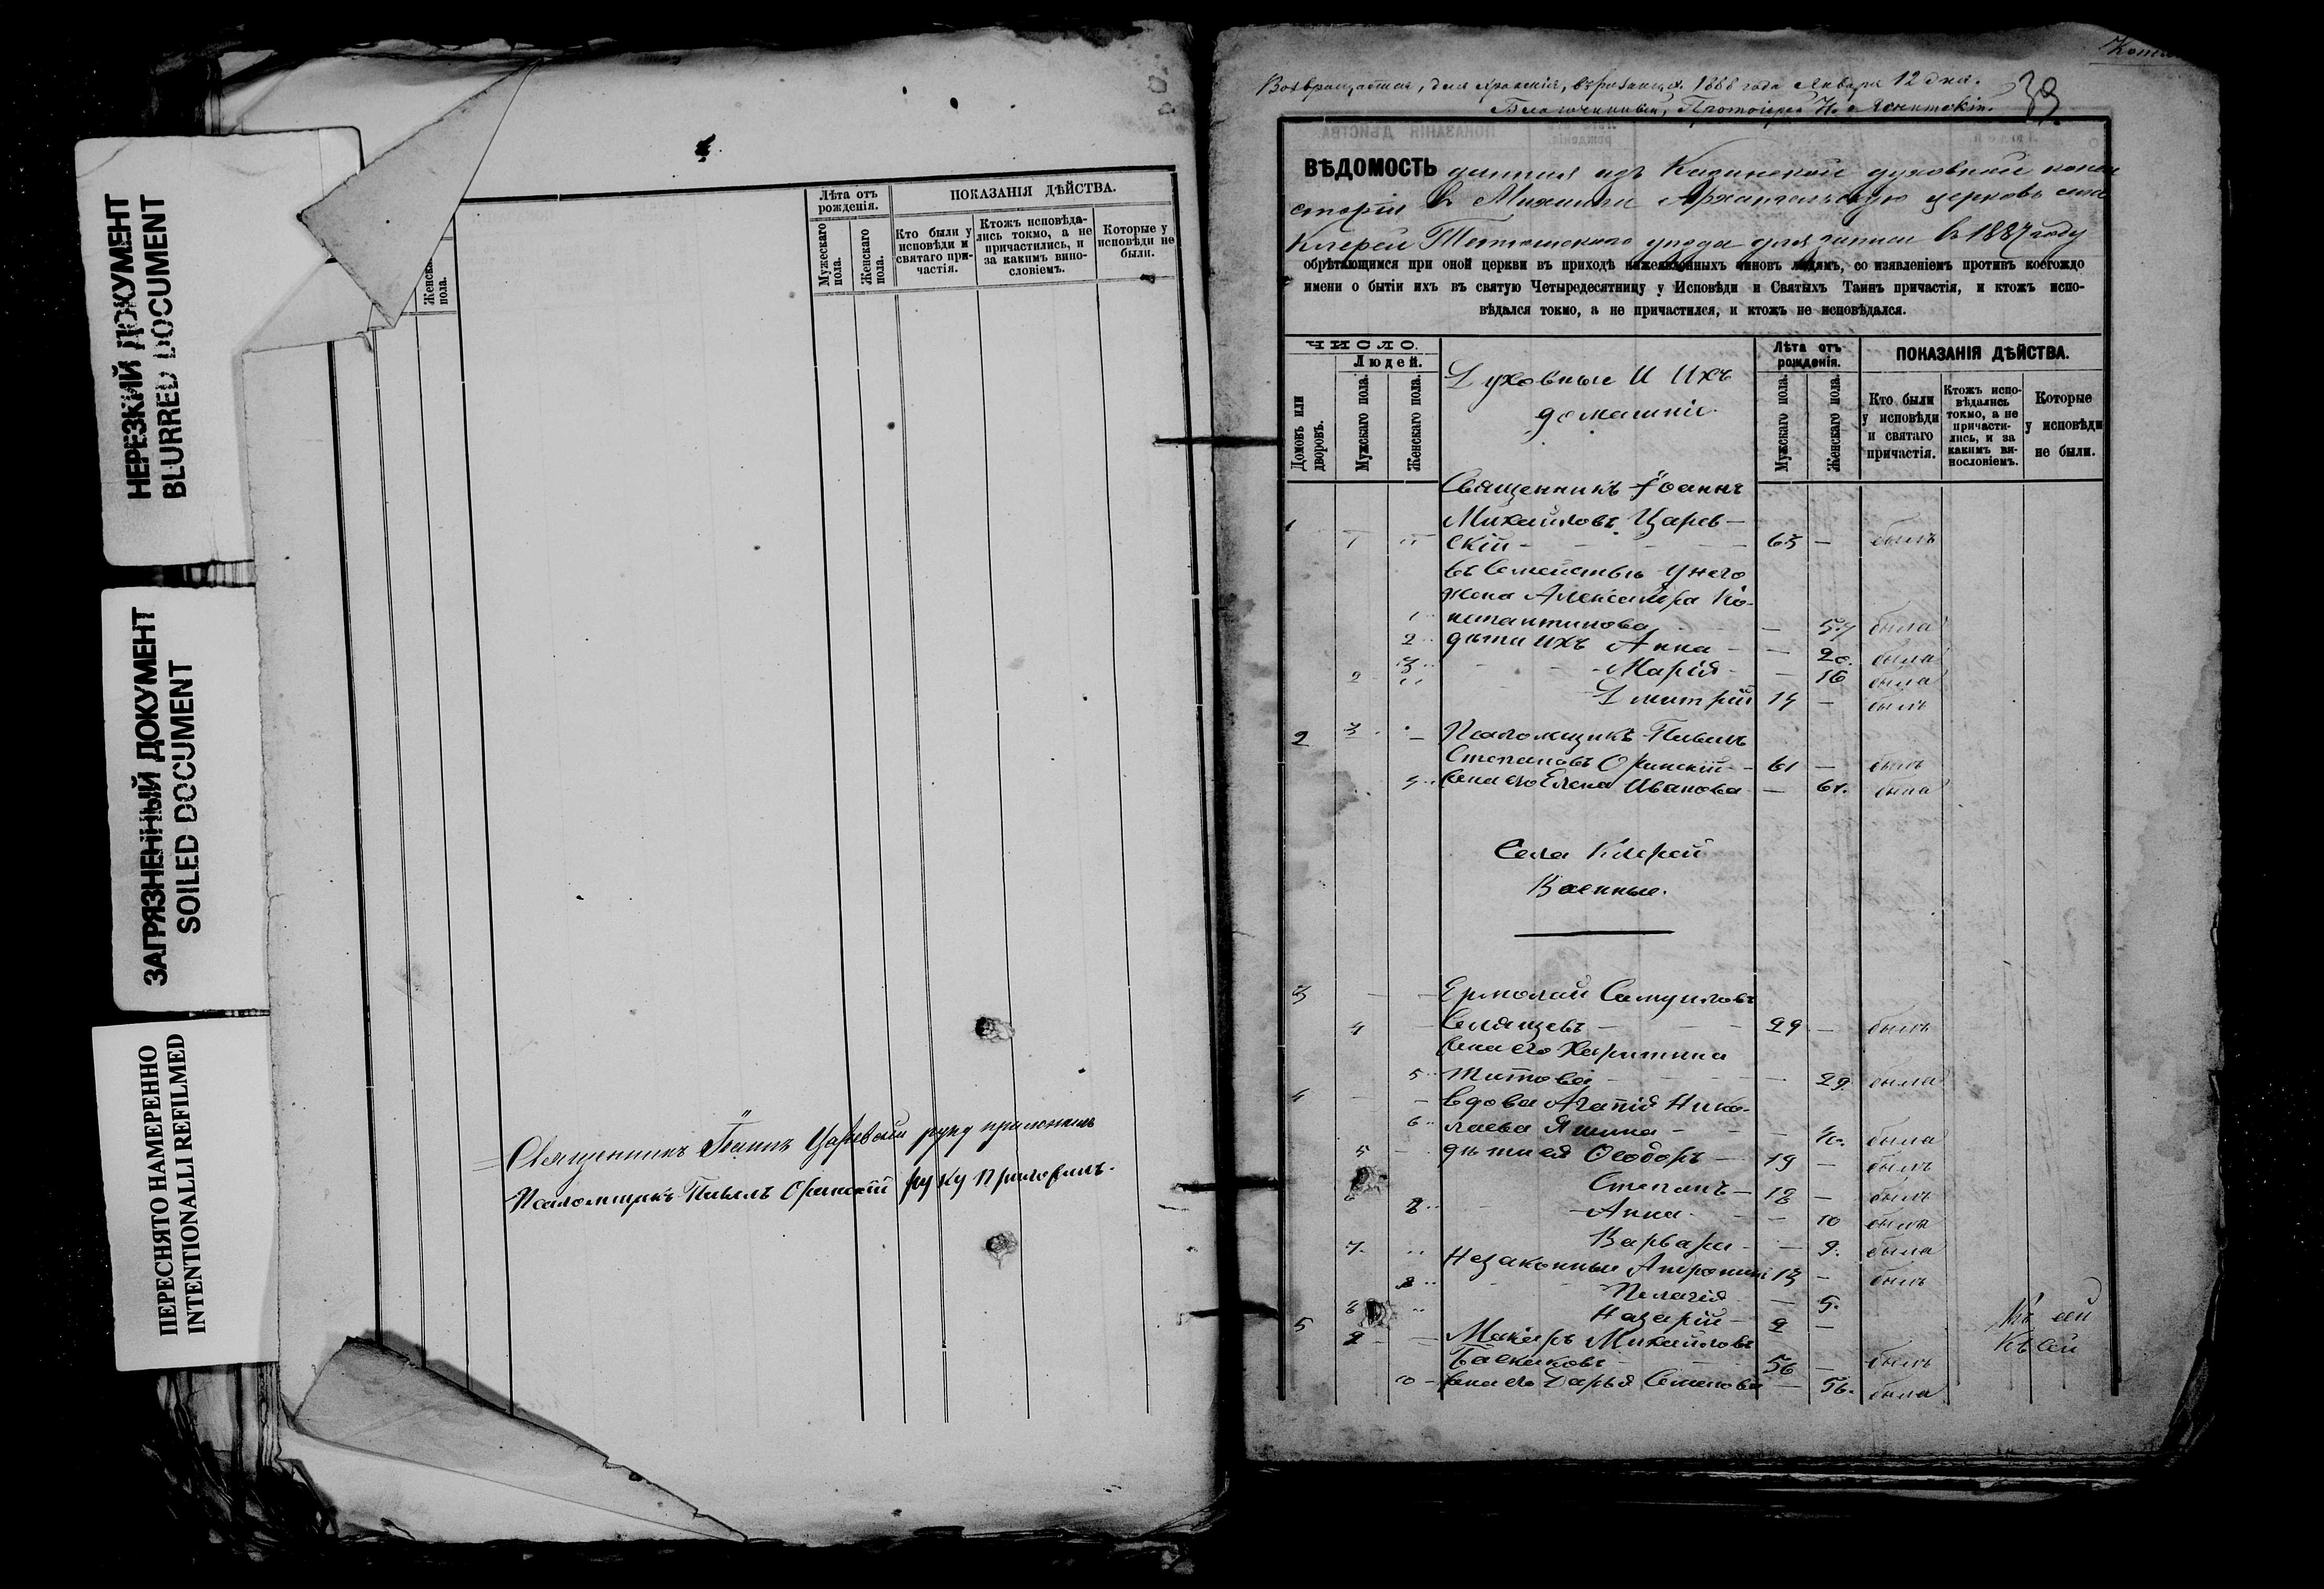 НЕРЕЗКИЙ ДОКУМЕНТ
BLURRED DOCUMENT
ЗАГРЯЗНЕННЫЙ ДОКУМЕНТ
SOILED DOCUMENT
ПЕРЕСНЯТО НАМЕРЕННО
INTENTIONALI REFILMED
Женска
пола.
Лѣта отъ
рожденія.
Мужескаго
пола.
Женскаго
пола.
ПОКАЗАНІЯ ДѢЙСТВА.
Кто были у
исповѣди и
святаго при-
частія.
Ктожъ исповѣда-
лись токмо, а не
причастились, и
за какимъ вино-
словіемъ.
Которые у
исповѣди не
были.
Священникъ Іоаннъ Царевскій руку приложилъ
Псаломщикъ Павелъ Оринскій руку приложилъ.
1888 года Января 12 дня.
Благочинный, Протоіерей
39
ВѢДОМОСТЬ данная изъ Казанской духовной конси
сторіи в Михаило Архангельскую церковь села
Клерей Тетюшскаго уѣзда для записи в 1887 году
обрѣтающимся при оной церкви въ приходѣ нижеявленныхъ чиновъ людямъ, со изявленіемъ противъ коегождо
имени о бытіи ихъ въ святую Четыредесятницу у Исповѣди и Святыхъ Таинъ причастія, и ктожъ испо-
вѣдался токмо, а не причастился, и ктожъ не исповѣдался.
ЧИСЛО.
Людей.
Домовъ или
дворовъ.
Мужскаго пола.
Женскаго пола.
Духовные и ихъ
домашніе.
Лѣта отъ
рожденія.
Мужскаго пола.
Женскаго пола.
ПОКАЗАНІЯ ДѢЙСТВА.
Кто были
у исповѣди
и святаго
причастія.
Ктожъ испо-
вѣдались
токмо, а не
причасти-
лись, и за
какимъ ви-
нословіемъ.
Которые
у исповѣди
не были.
Священникъ Іоаннъ
1 Михайловъ Царев-
1 скій - 63 - былъ
въ семействѣ у него
жена Александра Ко-
1 нстантинова - 57 была
2 дѣти ихъ Анна - 20. была
3 Марія - 16 была
2 Дмитрій 14 - былъ
2 3 - Псаломщикъ Павелъ
Степановъ Оринскій - 61 - былъ
4 жена его Елена Иванова - 61. была
Села Клерей
Военные.
3 Ермолай Самуиловъ
4 - 29 - былъ
жена его Харитина
5 Титова - 29. была
4 Вдова Агапія Нико-
6 лаева Яшина - 40. была
5 - дѣти ея Ѳеодоръ - 19 - былъ
6 Степанъ - 18 - былъ
Анна - 10 была
Варвара - 9. была
7. Незаконные 13 - былъ
Пелагія - 5.
8 Назарій - 2 -
5 Макаръ Михайловъ
56 - былъ
10 - жена его Дарья Семенова - 56. была